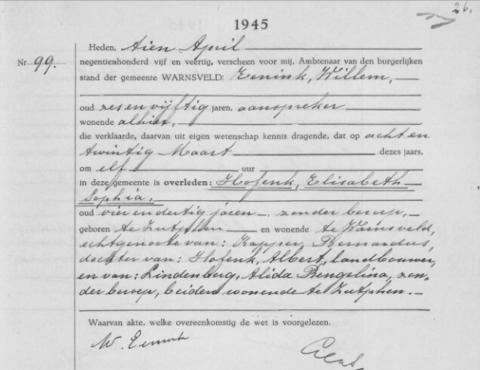 1945
26.
Heden, tien April
Nr 99. negentienhonderd vijf en veertig, verscheen voor mij, Ambtenaar van den burgerlijken
stand der gemeente WARNSVELD: Eenink, Willem,
oud zes en vijftig jaren, aanspreker
wonende alhier,
die verklaarde, daarvan uit eigen wetenschap kennis dragende, dat op acht en
twintig Maart dezes jaars,
om elf uur
in deze gemeente is overleden: Hofenk, Elisabeth
Sophia,
oud vier en dertig jaren, zonder beroep,
geboren te Zutphen en wonende te Warnsveld,
echtgenoote van: Kappser, Bernardus,
dochter van: Hofenk, Albert, landbouwer,
en van: Lindenberg, Alida Bengelina, zon-
der beroep, beiden wonende te Zutphen.
Waarvan akte, welke overeenkomstig de wet is voorgelezen.
W. Eenink